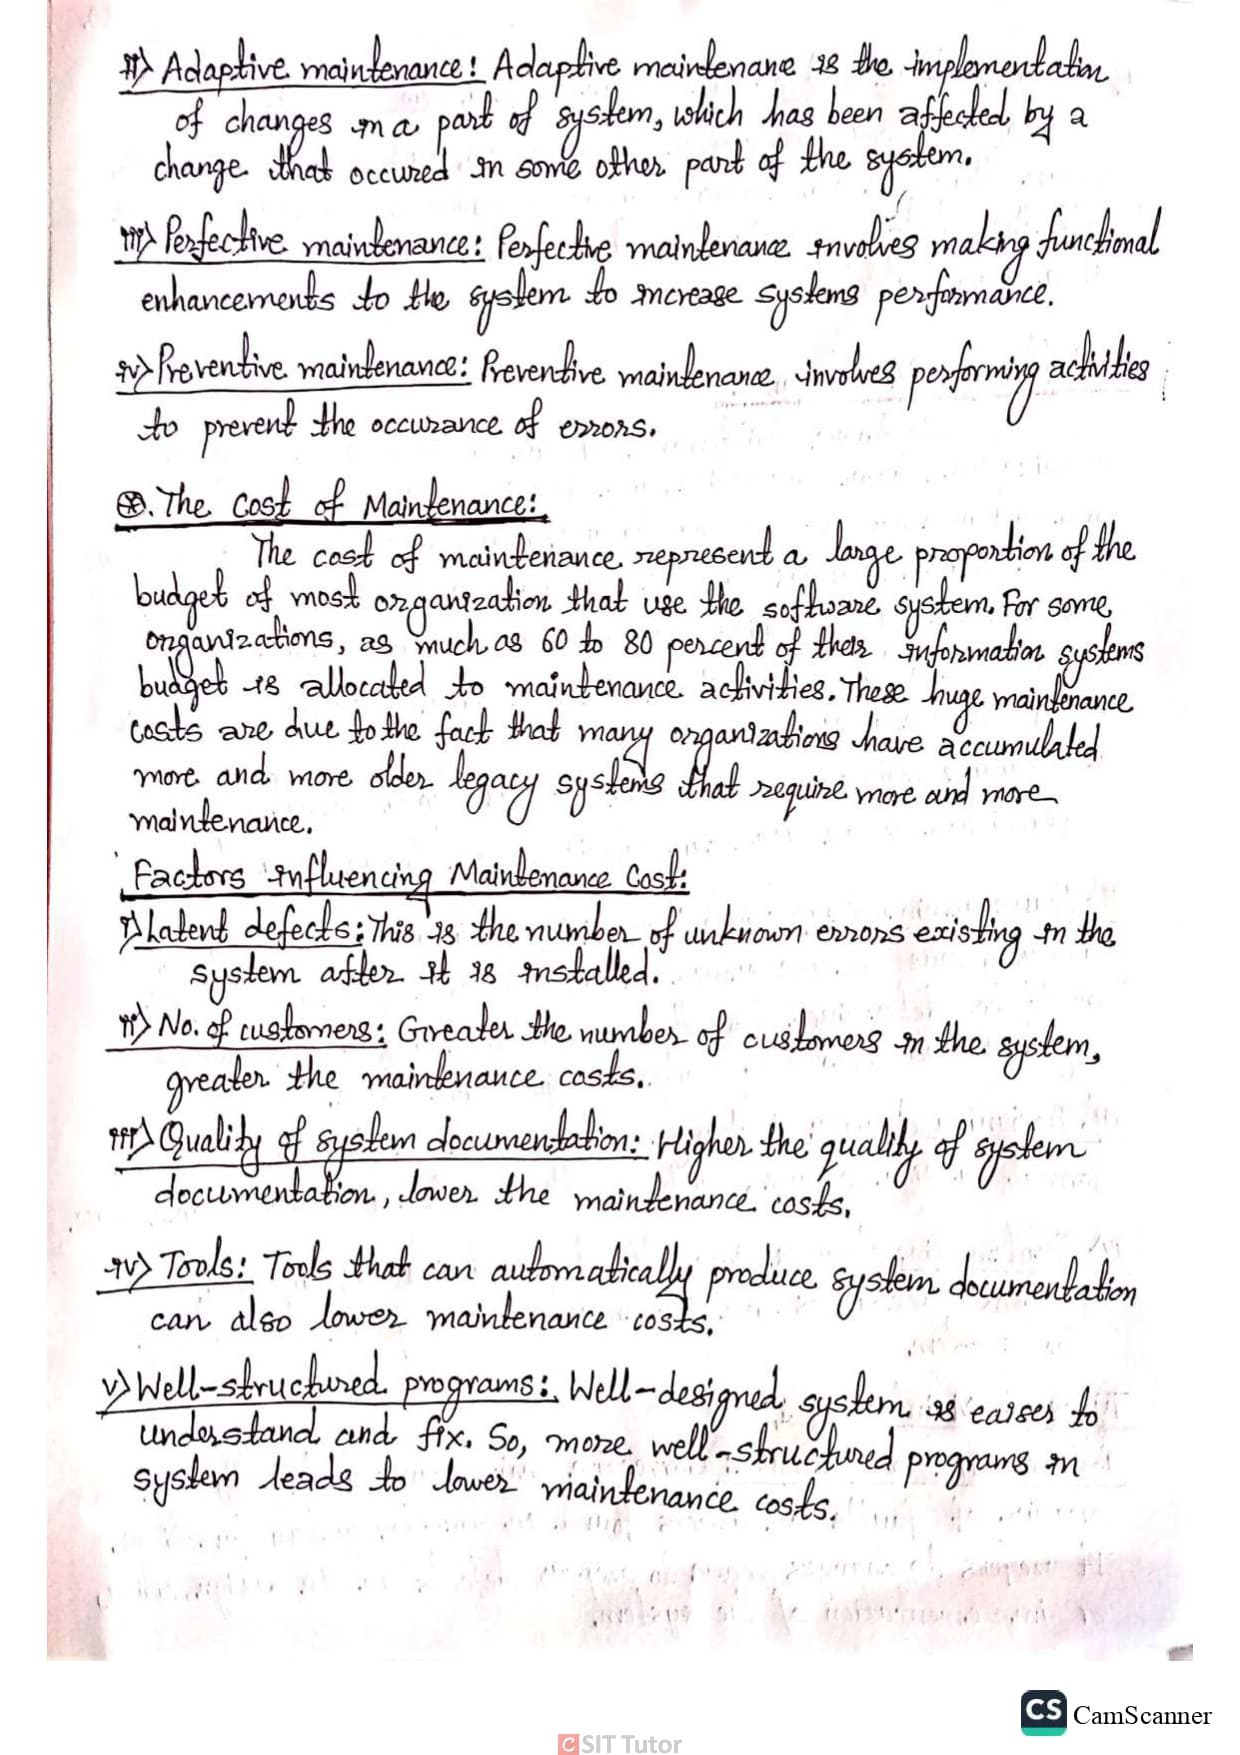 ii) Adaptive maintenance: Adaptive maintenane is the implementation
of changes in a part of system, which has been affected by a
change that occured in some other part of the system.
iii) Perfective maintenance: Perfective maintenance involves making functional
enhancements to the system to increase systems performance.
iv) Preventive maintenance: Preventive maintenance involves performing activities
to prevent the occurance of errors.
⊛. The Cost of Maintenance:
The cost of maintenance represent a large proportion of the
budget of most organization that use the software system. For some
organizations, as much as 60 to 80 percent of their information systems
budget is allocated to maintenance activities. These huge maintenance
costs are due to the fact that many organizations have accumulated
more and more older legacy systems that require more and more
maintenance.
Factors influencing Maintenance Cost:
i) Latent defects: This is the number of unknown errors existing in the
system after it is installed.
ii) No. of customers: Greater the number of customers in the system,
greater the maintenance costs.
iii) Quality of system documentation: Higher the quality of system
documentation, lower the maintenance costs.
iv) Tools: Tools that can automatically produce system documentation
can also lower maintenance costs.
v) Well-structured programs: Well-designed system is eaiser to
understand and fix. So, more well-structured programs in
system leads to lower maintenance costs.
CS CamScanner
CSIT Tutor